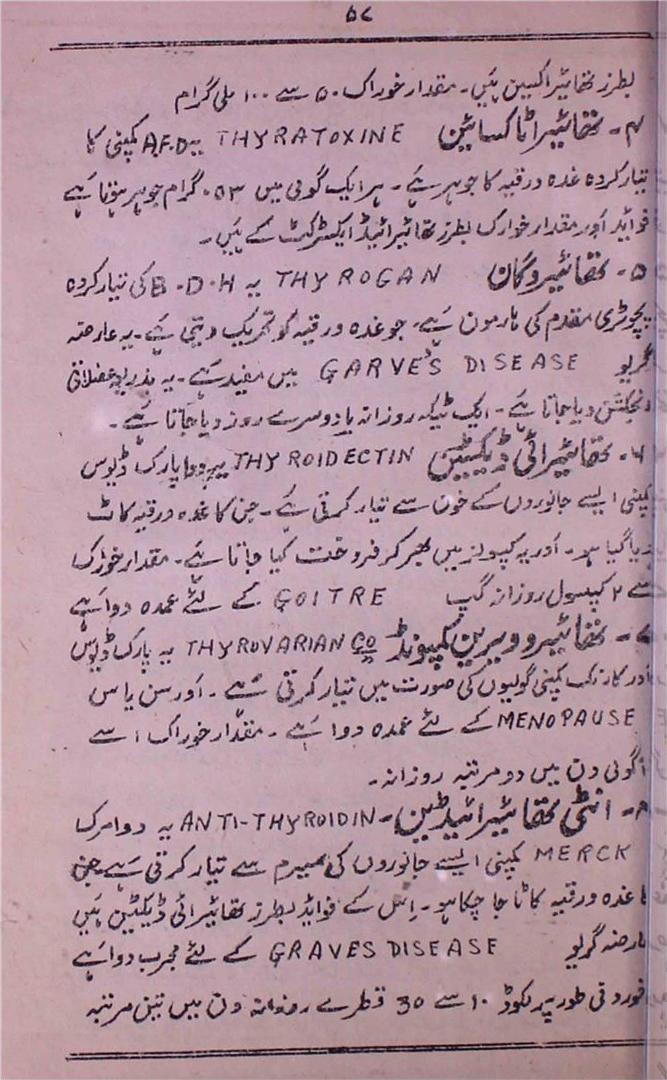 ۵۸
بطرز تھائیراکسین ہَیں۔ مقدار خوراک ۵۰ سے ۱۰۰ ملی گرام
۴۔ تھائیراٹاکسائین THYRATOXINE یہ A.F.D کمپنی کا
تیار کردہ غدہ ورقیہ کا جوہر ہَے۔ ہر ایک گولی میں ۰۵۳ گرام جوہر ہوتا ہَے
فوائد اَور مقدار خوارک بطرز تھائیرائیڈ ایکسٹرکٹ کے ہَیں۔
۵۔ تھائیروگان THYROGAN یہ B.D.H کی تیار کردہ
پچوٹری مقدم کی ہارمون ہَے۔ جو غدہ ورقیہ کو تحریک دیتی ہَے۔ یہ عارضہ
گریو GARVE'S DISEASE میں مفید ہَے۔ یہ بذریعہ عضلاتی
انجکشن دیا جاتا ہَے۔ ایک ٹیکہ روزانہ یا دوسرے روز دیا جاتا ہَے۔
۶۔ تھائیرائی ڈیکٹین THYROIDECTIN یہ دوا پارک ڈیوس
کمپنی ایسے جانوروں کے خون سے تیار کرتی ہَے۔ جن کا غدہ ورقیہ کاٹ
دیا گیا ہو۔ اَور یہ کیپولز میں بھر کر فروخت کیا جاتا ہَے۔ مقدار خوراک
سے ۲ کیپسول روزانہ GOITRE کے لئے عمدہ دوا ہَے
۷۔ تھائیرو ویرین کمپونڈ THYROVARIAN CO یہ پارک ڈیوس
اَور کارنرک کمپنی گولیوں کی صورت میں تیار کرتی ہَے۔ اَور سن یاس
MENOPAUSE کے لئے عمدہ دوا ہَے۔ مقدار خوراک ۱ سے
گولی دن میں دو مرتبہ روزانہ۔
۸۔ انٹی تھائیرائیڈین۔ ANTI-THYROIDIN یہ دوا مرک
MERCK کمپنی ایسے جانوروں کی سیرم سے تیار کرتی ہَے جن
کا غدہ ورقیہ کاٹا جا چکا ہو۔ اِس کے فوائد بطرز تھائیرائی ڈیکٹین ہَیں
عارضہ گریو GRAVES DISEASE کے لئے مجرب دوا ہَے
خوردنی طور پر لکوڈ ۱۰ سے 30 قطرے روزانہ دن میں تین مرتبہ